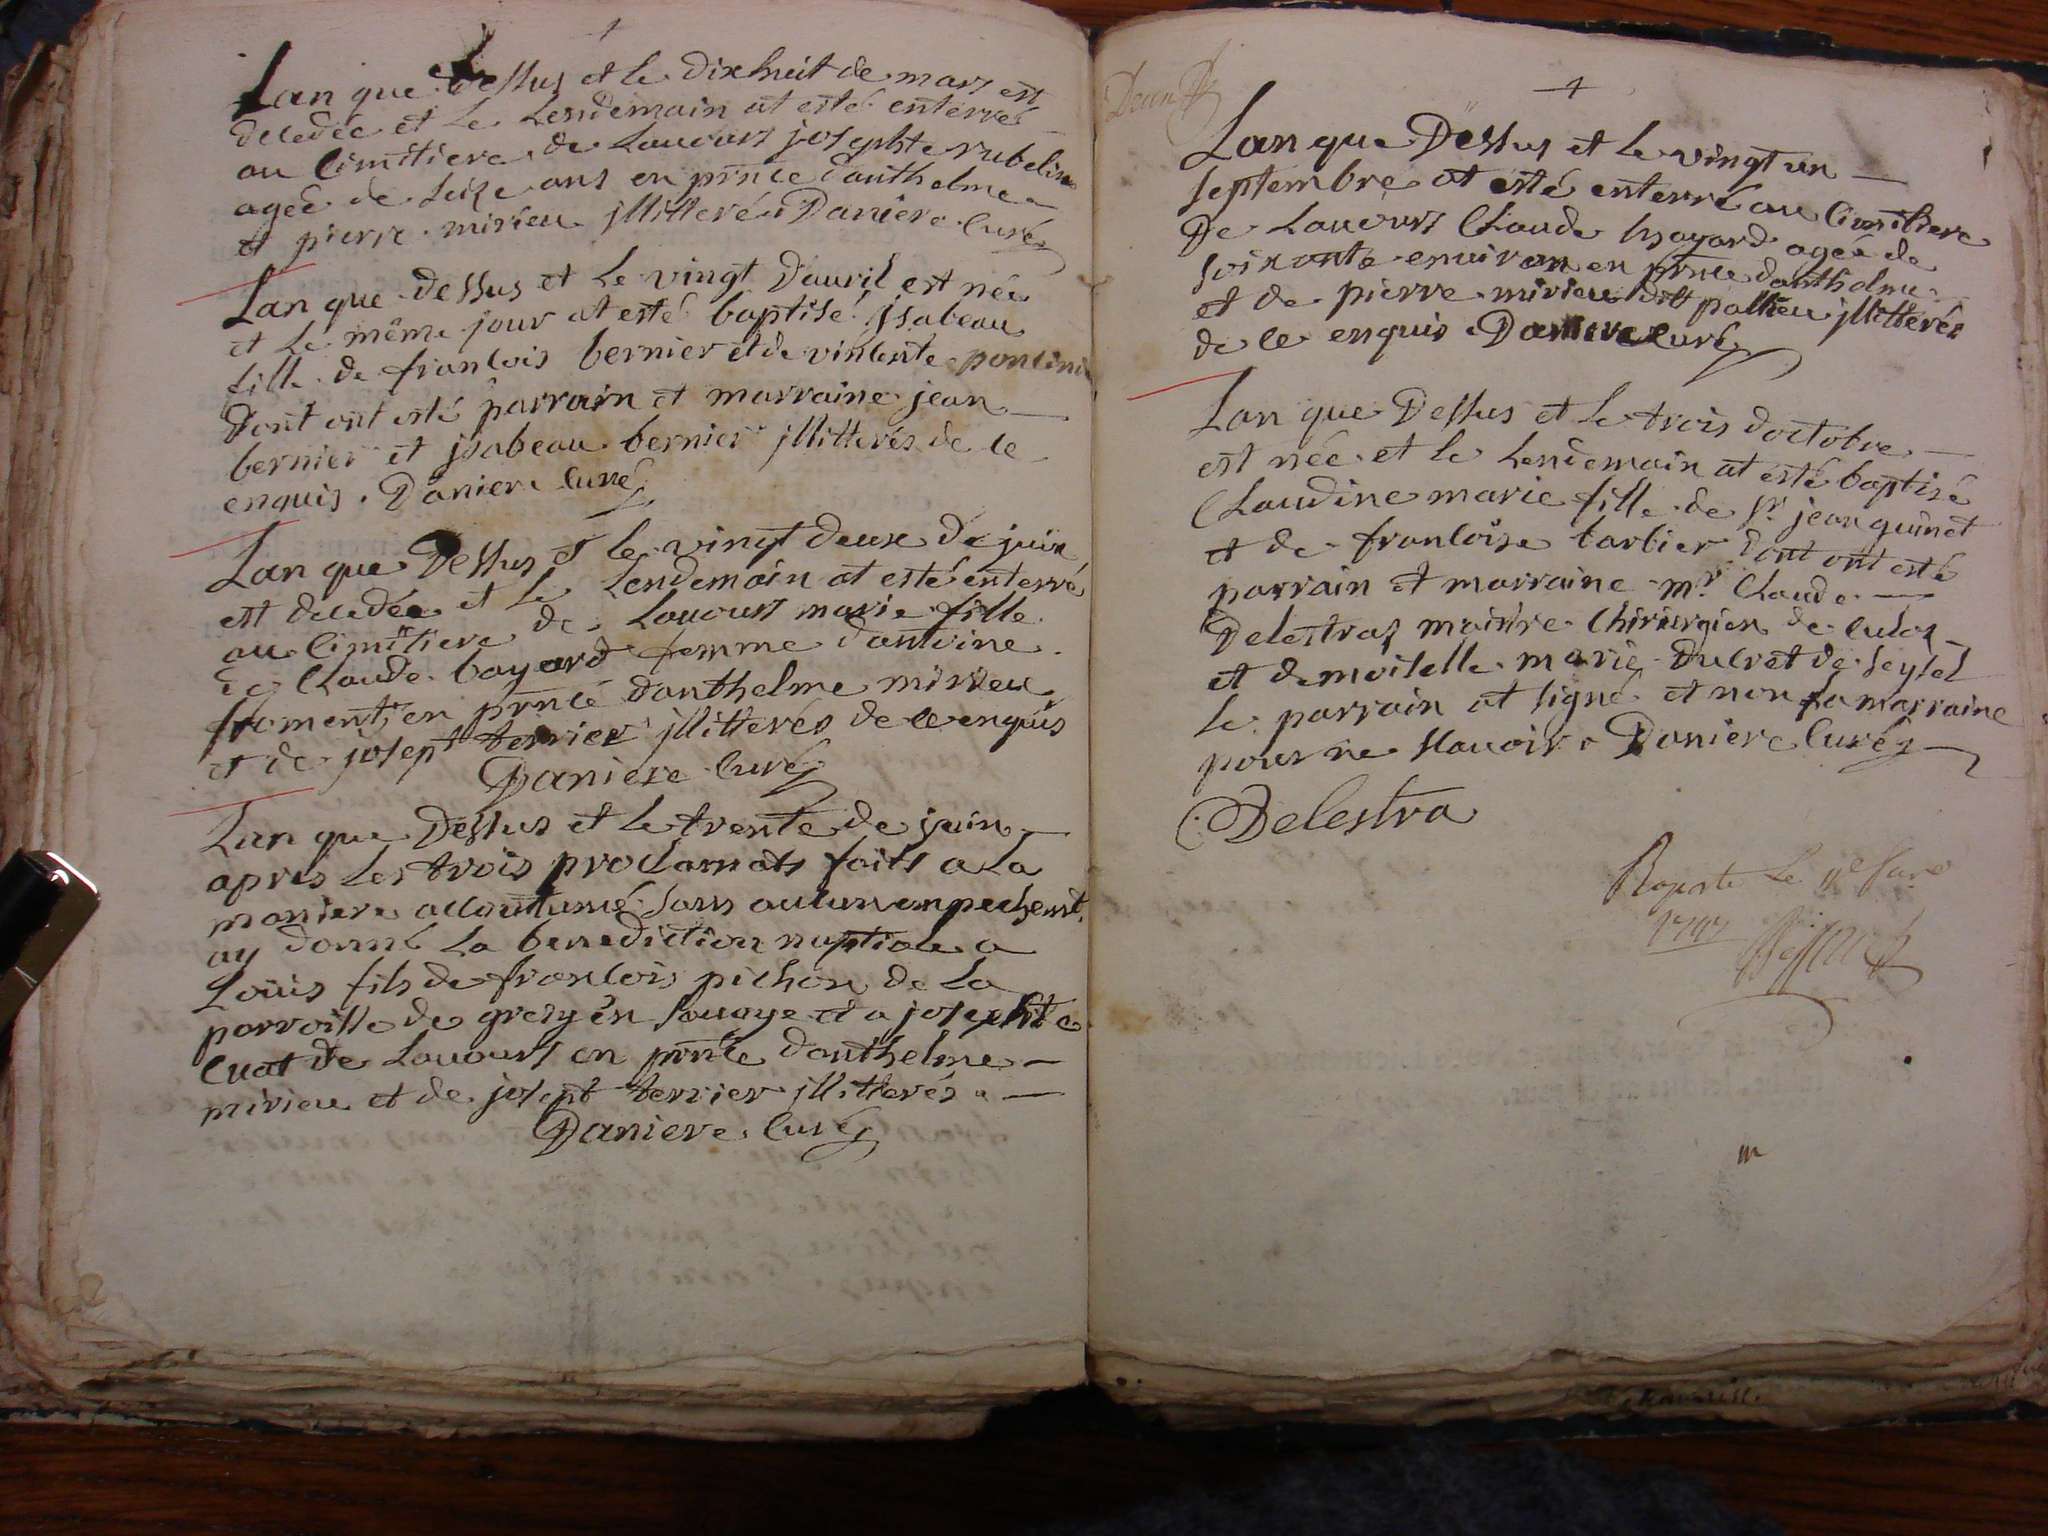 Lan que Dessus et le dixhuit de mars est
decedée et le Lendemain at esté enterré
au Cimitiere de Lavours josephte rubelin
agée de seize ans en pñce danthelme
et pierre mirieu jllitterés Daniere Curé
Lan que dessus et Le vingt Davril est née
et Le même jour at esté baptisé jsabeau
fille de francois bernier et de vincente poncin
Dont ont esté parrain et marraine jean
bernier et jsabeau bernier jllitterés de ce
enquis. Daniere Curé
Lan que Dessus et le vingt deux de juin
est decedée et Le Lendemain at esté enterré
au Cimitiere de Lavours marie fille
de Claude bayard femme dantoine
froment en pñce danthelme mirieu
et de josept terrier jllitterés de ce enquis
Daniere Curé
Lan que Dessus et le trente de juin
apres les trois proclamats faits a La
maniere accoutumé sans aucun empechemt.
ay donné La benediction nuptiale a
Loüis fils de francois pichon de La
parroisse de gresy en savoye et a josephte
cuat de Lavours en pñce danthelme
mirieu et de josept terrier jllitterés.
Daniere Curé
Lan que Dessus et le vingt un
septembre at esté enterré au Cimitiere
De Lavours Claude bayard agée de
soixante environ en pñce danthelme
et de pierre mirieu dit pattieu jllitterés
de ce enquis Daniere Curé
Lan que Dessus et le trois doctobre
est née et le Lendemain at esté baptisé
Claudine marie fille de Sr. jean guinet
et de francoise tarbier Dont ont esté
parrain et marraine mr. Claude
Delestraz maitre Chirurgien de culoz
et demoiselle marie Ducret de seysel
le parrain at signé et non la marraine
pour ne scavoir. Daniere Curé
C. Delestra
Le 11e